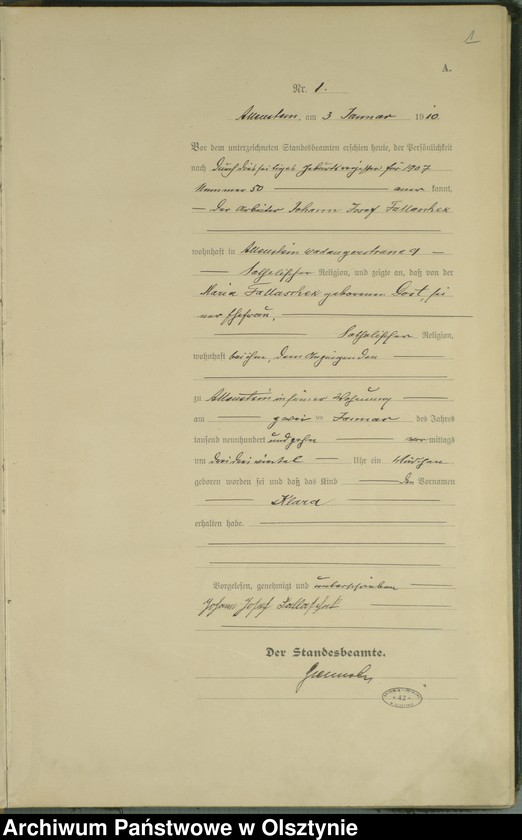 1
A.
Nr. 1.
Allenstein, am 3 Januar 1910.
Vor dem unterzeichneten Standesbeamten erschien heute, der Persönlichkeit
nach durch diesseitiges Geburtsregister für 1907
Nummer 50 aner kannt,
der Arbeiter Johann Josef Fallaschek
wohnhaft in Allenstein 9
katholischer Religion, und zeigte an, daß von der
Maria Fallaschek geborenen sei
ner Ehefrau,
katholischer Religion,
wohnhaft bei ihm, dem Anzeigenden
zu Allenstein in seiner Wohnung
am zwei ten Januar des Jahres
tausend neunhundert und zehn vor mittags
um drei drei viertel Uhr ein Mädchen
geboren worden sei und daß das Kind den Vornamen
Klara
erhalten habe.
Vorgelesen, genehmigt und unterschrieben
Johann Josef Fallaschek
Der Standesbeamte.
Archiwum Państwowe w Olsztynie